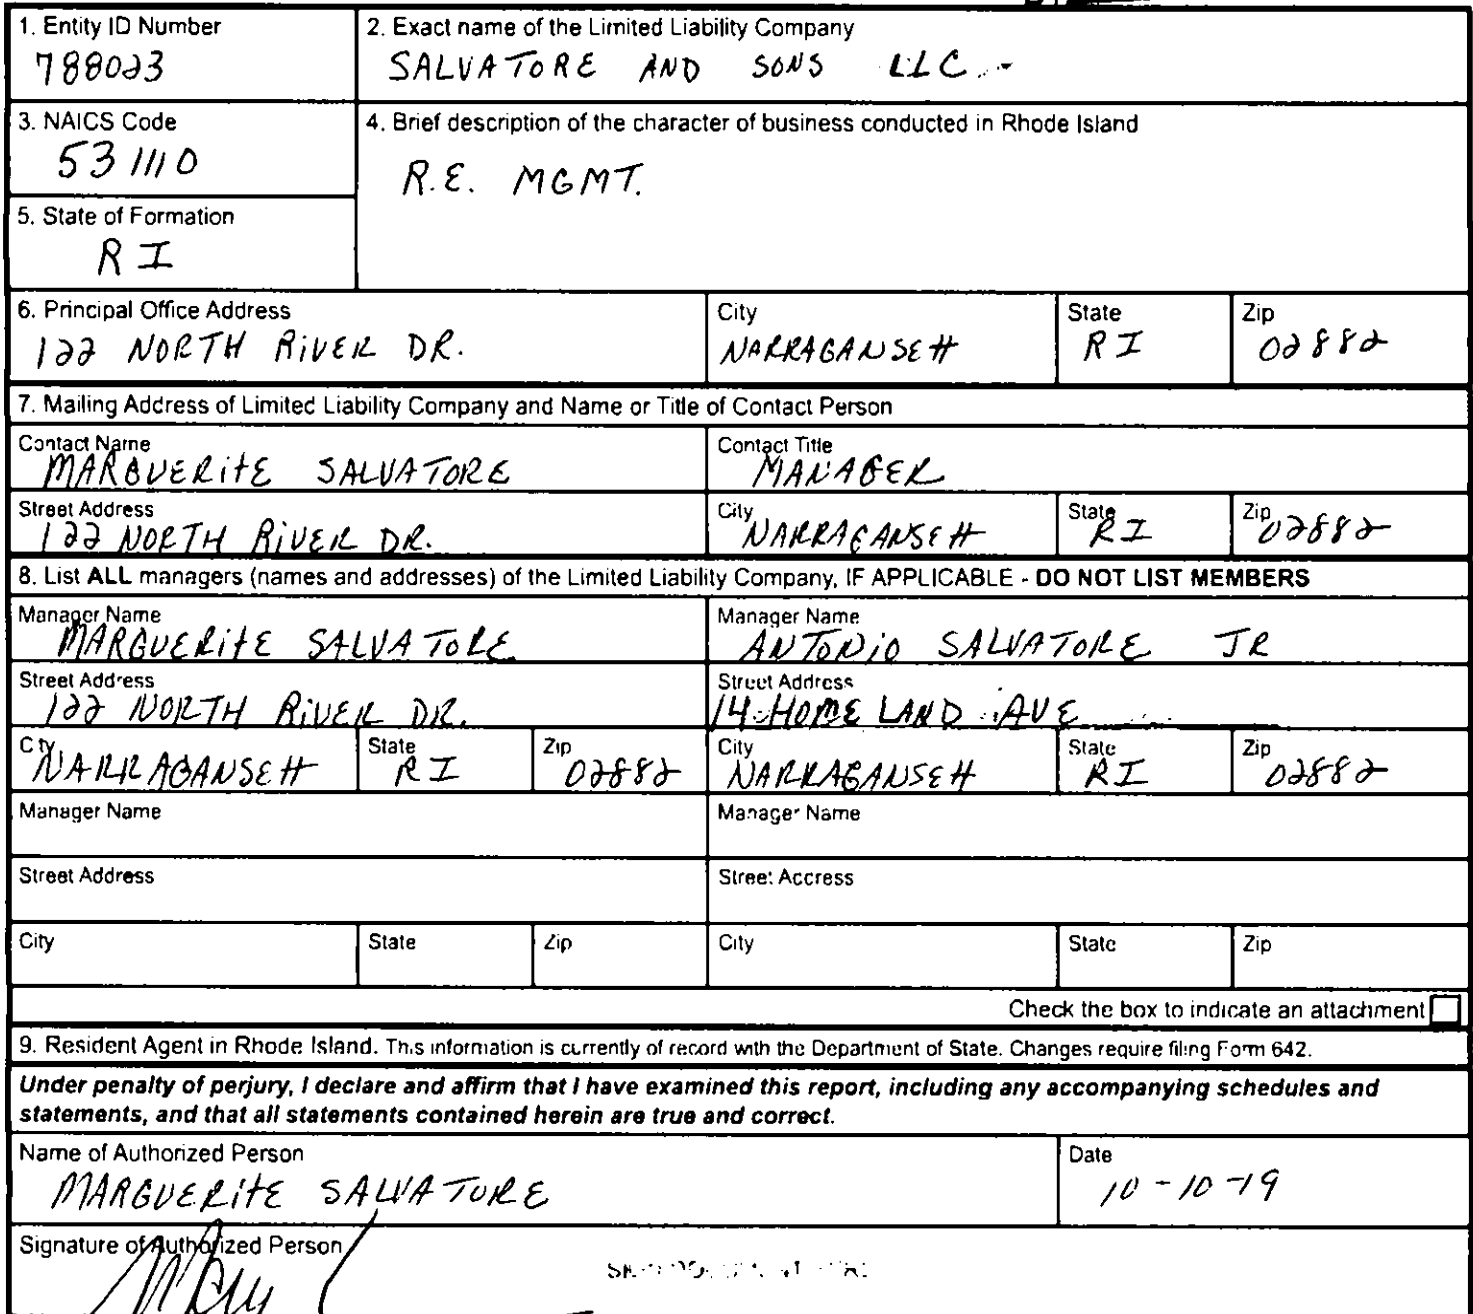 1. Entity ID Number
788023
2. Exact name of the Limited Liability Company
SALVATORE AND SONS LLC
3. NAICS Code
531110
4. Brief description of the character of business conducted in Rhode Island
R.E. MGMT.
5. State of Formation
RI
6. Principal Office Address
122 NORTH RiVER DR.
City
NARRAGANSEtt
State
RI
Zip
02882
7. Mailing Address of Limited Liability Company and Name or Title of Contact Person
Contact Name
MARGUERitE SALVATORE
Contact Title
MANAGER
Street Address
122 NORTH RiVER DR.
City
NARRAGANSEtt
State
RI
Zip
02882
8. List ALL managers (names and addresses) of the Limited Liability Company, IF APPLICABLE - DO NOT LIST MEMBERS
Manager Name
MARGUERitE SALVATORE
Manager Name
ANTONiO SALVATORE JR
Street Address
122 NORTH RiVER DR.
Street Address
14 HOMELAND AVE
City
NARRAGANSEtt
State
RI
Zip
02882
City
NARRAGANSEtt
State
RI
Zip
02882
Manager Name
Manager Name
Street Address
Street Address
City
State
Zip
City
State
Zip
Check the box to indicate an attachment
9. Resident Agent in Rhode Island. This information is currently of record with the Department of State. Changes require filing Form 642.
Under penalty of perjury, I declare and affirm that I have examined this report, including any accompanying schedules and
statements, and that all statements contained herein are true and correct.
Name of Authorized Person
MARGUERitE SALVATORE
Date
10-10-19
Signature of Authorized Person